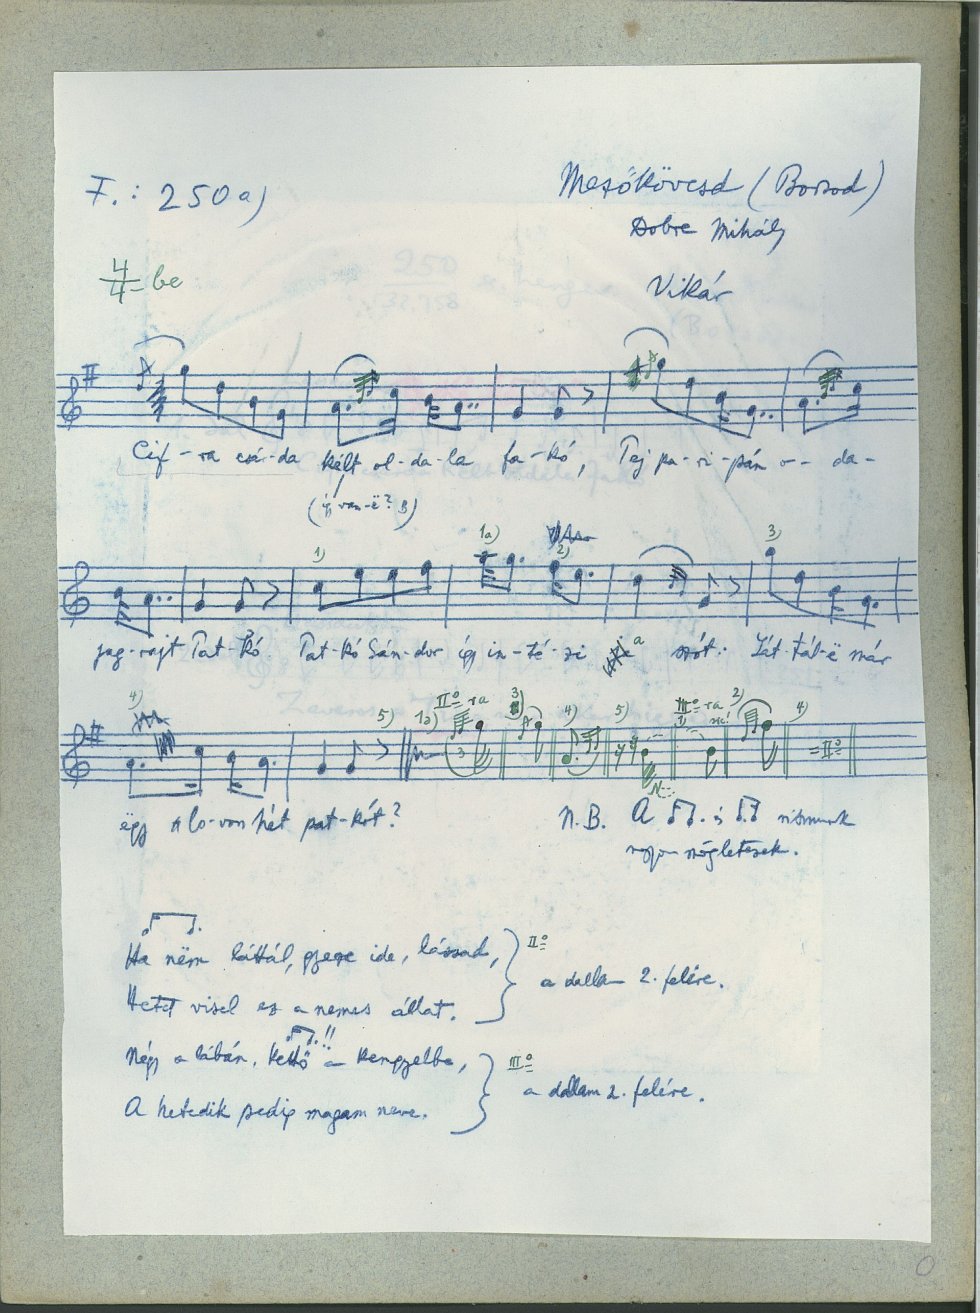 F.: 250 a)
Mezőkövesd (Borsod)
Dobre Mihály
4/4-be
Vikár
Cif-ra csár-da kélt ol-da-la fa-kó, Tej pa-ri-pán o-- da-
(így van-ë? B)
1) 1a) 2) 3)
jug-rajt Pat-kó. Pat-kó Sán-dor így in-té-zi a szót: Lát-tál-ë már
4) 5) 1a) II° ra 3) 4) 5) III° ra 1) 2) 4)
3
=II°
ëgy lo-von hét pat-kót?
N.B. A és ritmusok
nagyon végletesek.
Ha nëm láttál, gyere ide, lássad,
II°
a dallam 2. felére.
Hetet visel ez a nemes állat.
Négy a lábán, kettő a kengyelbe, !!
III°
a dallam 2. felére.
A hetedik pedig magam neve.
0